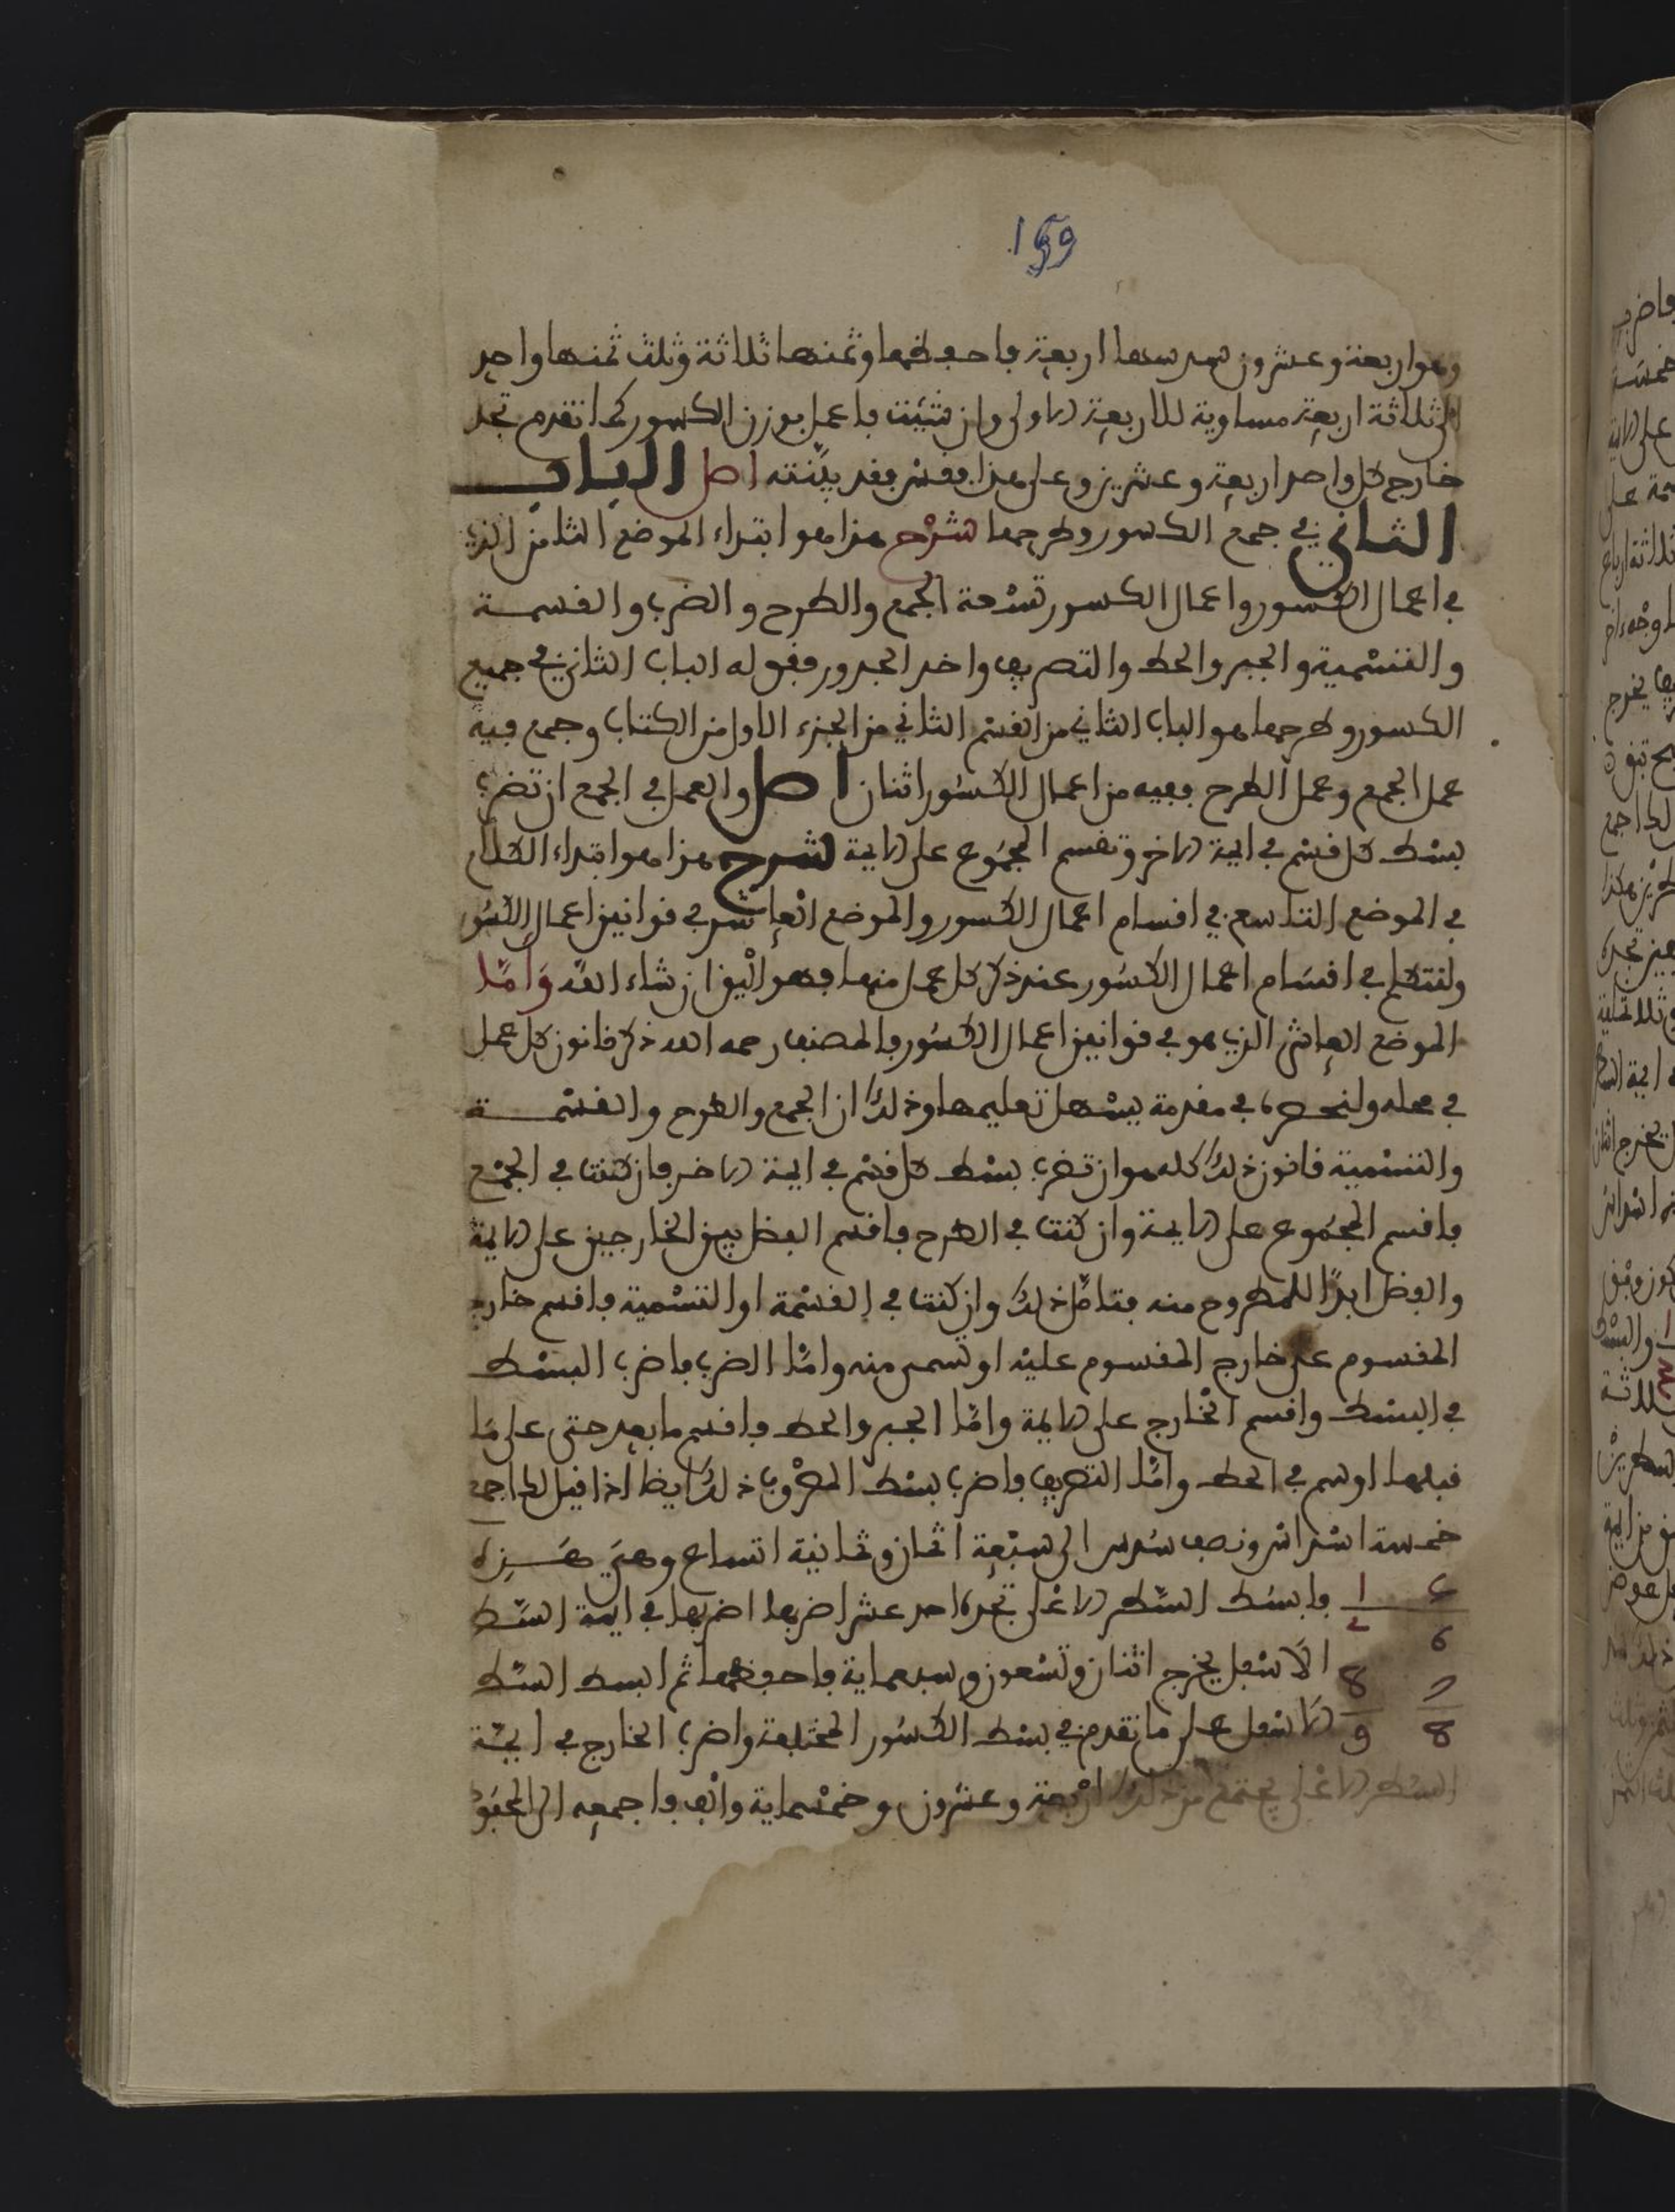 159
وهو اربعة وعشرون سدسها اربعة فاحفظها وثمنها ثلاثة وثلث ثمنها واحد
الى ثلاثة اربعة مساوية للاربعة الاولى وان شئت فاعمل بوزن الكسور كما تقدم تجد
خارج كل واحد اربعة وعشرين وعلى هذا فقس فقد بينته اصل البـاب
الثاني في جمع الكسور وطرحها شرح هذا هو ابتداء الموضع الثامن الذي
في اعمال الكسور واعمال الكسور تسعة الجمع والطرح والضرب والقسمة
والتسمية والجبر والحط والتصريف واخذ الجذور فقوله الباب الثاني في جميع
الكسور وطرحها هو الباب الثاني من القسم الثاني من الجزء الاول من الكتاب وجمع فيه
عمل الجمع وعمل الطرح ففيه من اعمال الكسور اثنان اصل والعمل في الجمع ان تضرب
بسط كل قسم في ايمة الاخر وتقسم المجموع على الايمة شرح هذا هو ابتداء الكلام
في الموضع التاسع في اقسام اعمال الكسور والموضع العاشر في قوانين اعمال الكسور
ولنتكلم في اقسام اعمال الكسور عند ذكر كل عمل منها فهو اليق ان شاء الله واما
الموضع العاشر الذي هو في قوانين اعمال الكسور فالمصنف رحمه الله ذكر قانون كل عمل
في محله ولنحصره في مقدمة يسهل تعليمها وذلك ان الجمع والطرح والقسمة
والتسمية قانون ذلك كله هو ان تضرب بسط كل قسم في ايمة الاخر فان كنت في الجمع
فاقسم المجموع على الايمة وان كنت في الطرح فاقسم الفضل بين الخارجين على الايمة
والفضل ابدا للمطروح منه فتامل ذلك وان كنت في القسمة او التسمية فاقسم خارج
المقسوم على خارج المقسوم عليه او تسمى منه واما الضرب فاضرب البسط
في البسط واقسم الخارج على الايمة واما الجبر والحط فاقسم ما بعد حتى على ما
قبلها او سم في الحط واما التصريف فاضرب بسط المصروف ذلك ايضا اذا قيل لك اجمع
خمسة اسداس ونصف سدس الى سبعة اثمان وثمانية اتساع وهي هذه
فابسط السطر الاعلى تجده احد عشر اضربها اضربها في ايمة السطر
الاسفل يخرج اثنان وتسعون وسبعماية فاحفظها ثم ابسط السطر
الاسفل على ما تقدم في بسط الكسور المختلفة واضرب الخارج في ايمة
السطر الاعلى يجتمع من ذلك اربعة وعشرون وخمسماية والف فاجمعه الى المحفوظ